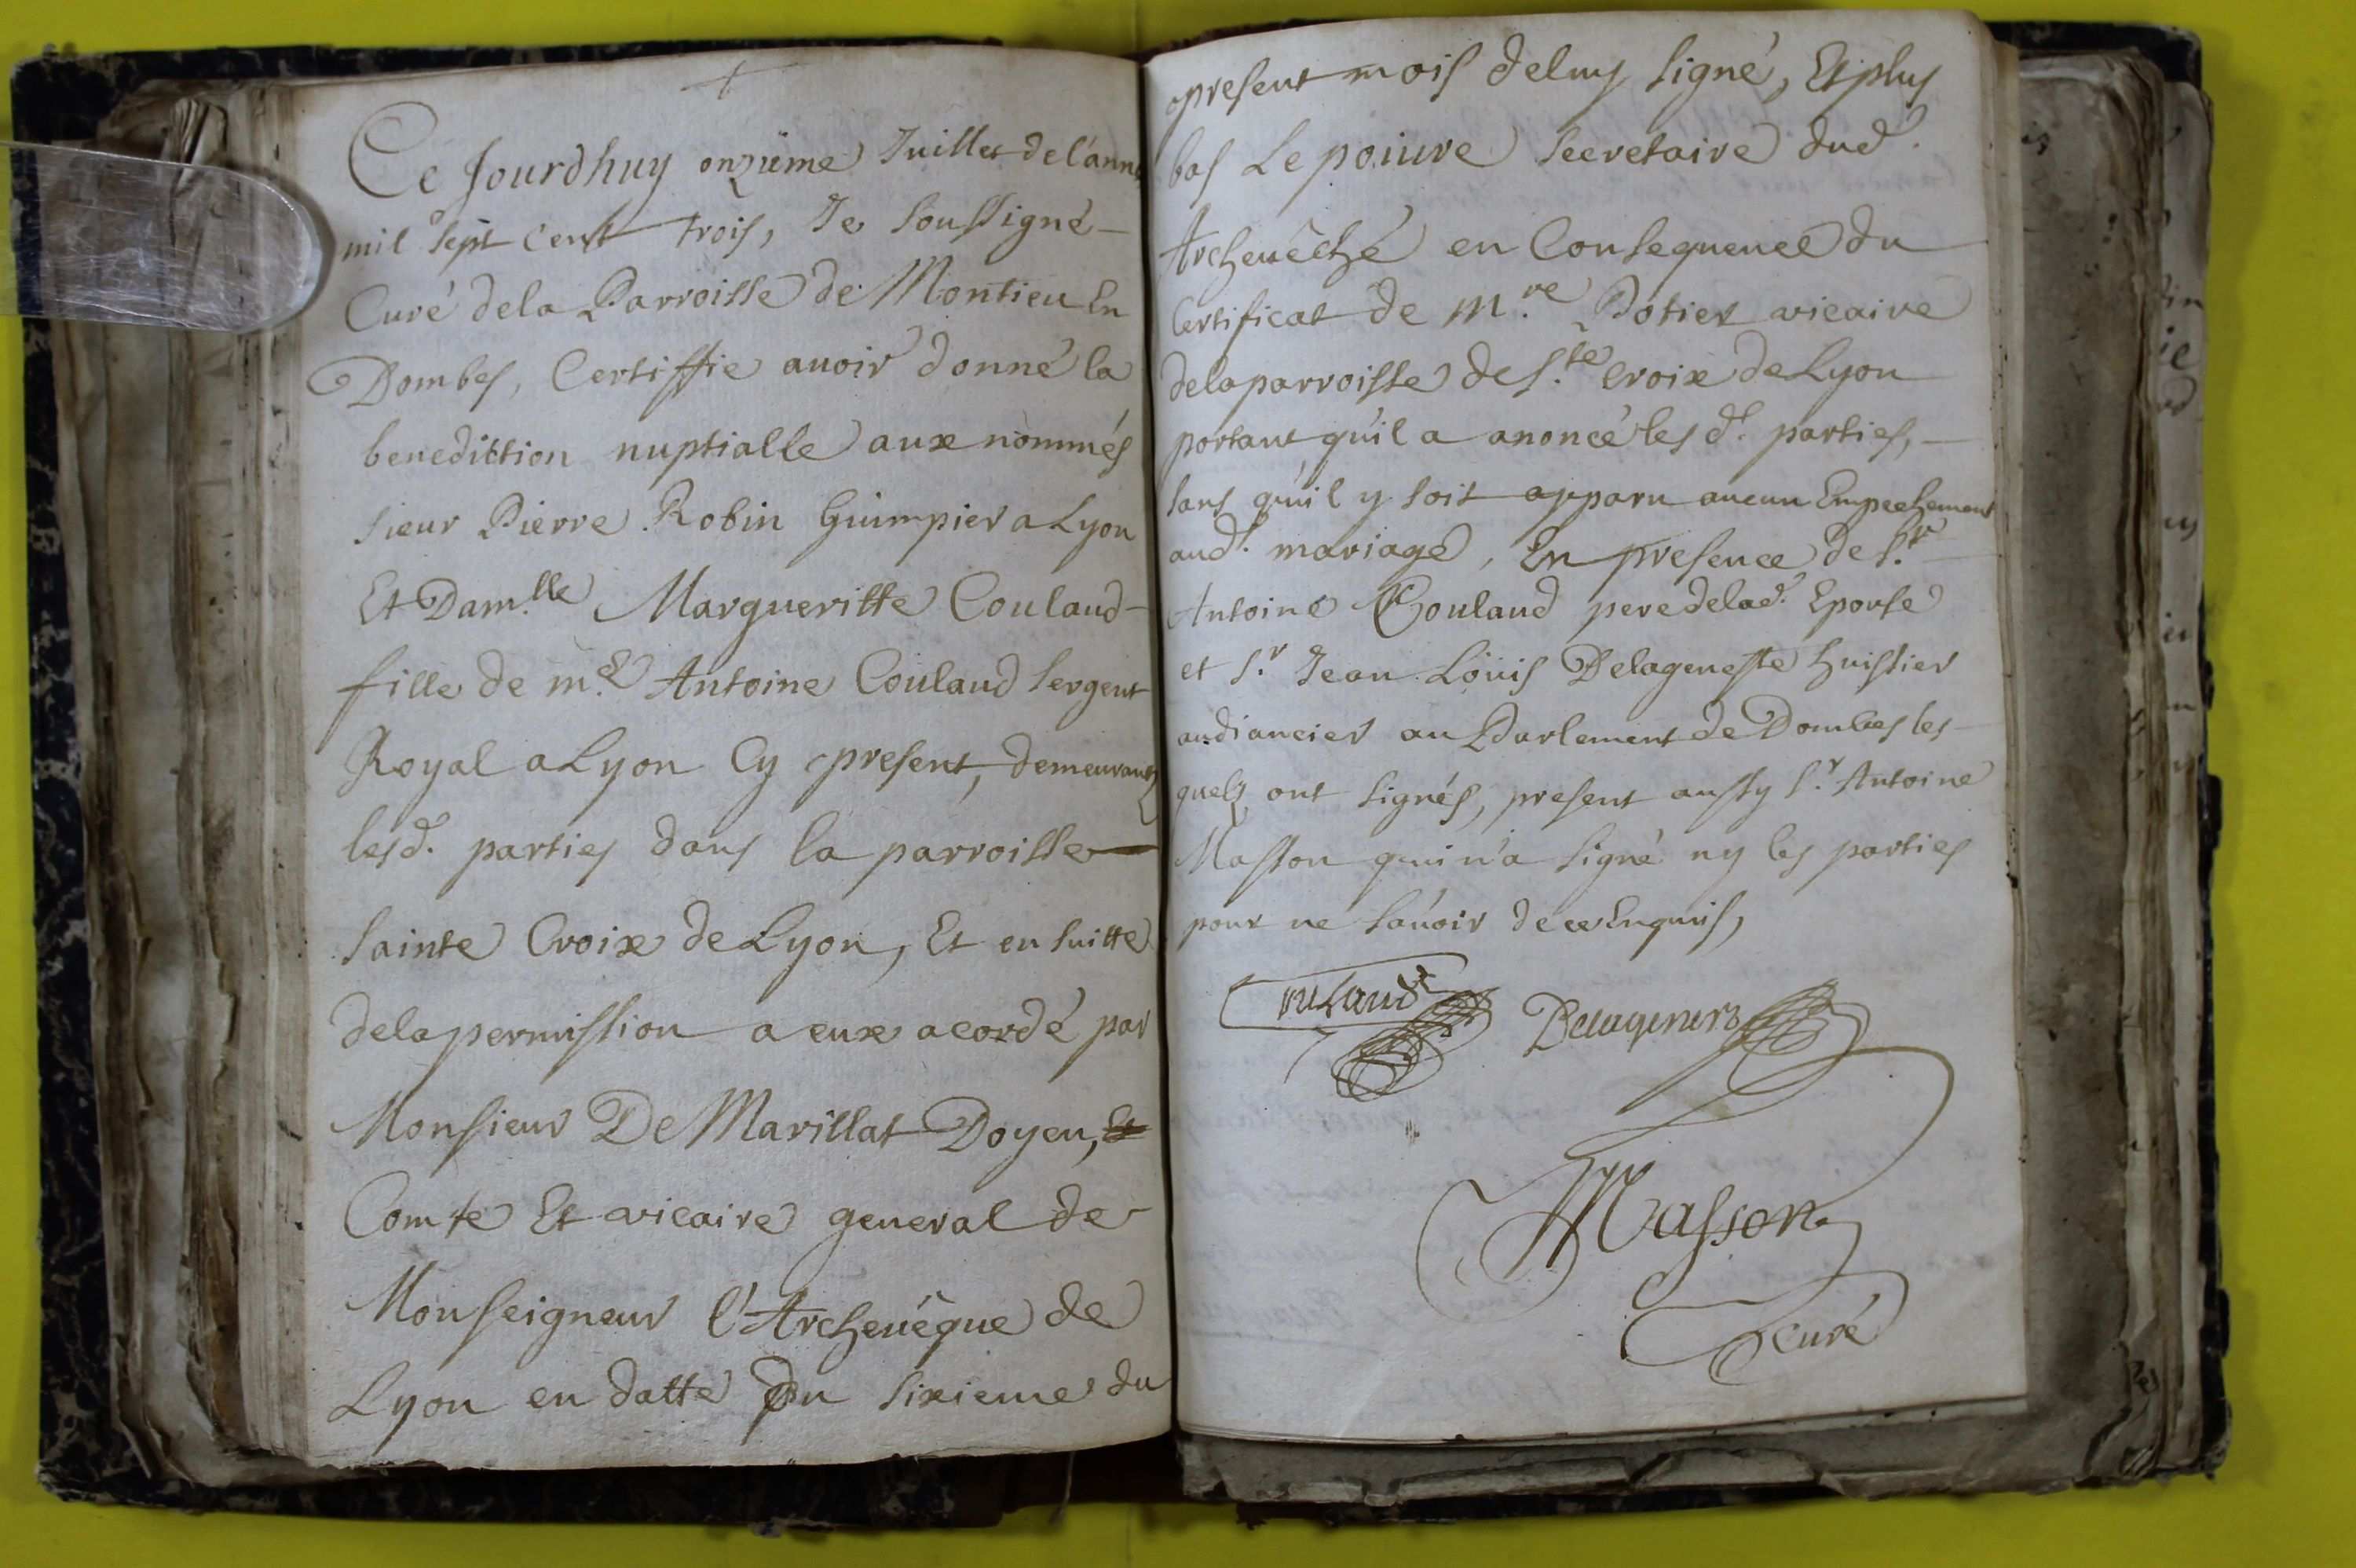 Ce Jourdhuy onziéme Juillet de l'année
mil sept cent trois, Je soussigné
Curé dela Parroisse de Montieu En
Dombes, Certiffie auoir donné la
benediction nuptialle aux nommés
sieur Pierre Robin Guimpier a Lyon
Et Dam.lle Margueritte Coulaud
fille de m.e Antoine Coulaud sergent
Royal a Lyon Cy present, demeurants
lesd. parties dans la parroisse
sainte Croix de Lyon, Et en suitte
dela permission a eux acordé par
Monsieur De Marillat Doyen, Et
Comte Et vicaire general de
Monseigneur l'Archeuêque de
Lyon en datte Du sixieme du
present mois de luy signé, Et plus
bas Le poiure secretaire dud.
Archeuêché en Consequence du
Certificat de M.re Potier vicaire
dela parroisse de S.te Croix de Lyon
portant qu'il a anoncé les d. parties,
sans qu'il y soit apparu aucun Empechement
aud. mariage, En presence de S.r
Antoine Coulaud pere de lad. Epouse
et S.r Jean Loüis Delageneste huissier
audiancier au Parlement de Dombes les
quels ont signés, present aussy S.r Antoine
Masson qui n'a signé ny les parties
pour ne sauoir de ce Enquis,
Coulaud
Masson
Curé